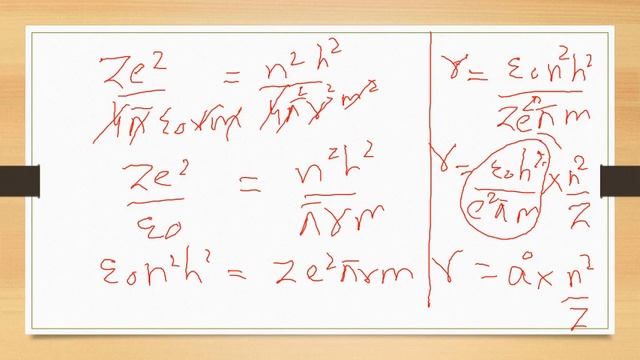 Ze² / 4π ε₀ r m = n² h² / 4 π² r² m²
Ze² / ε₀ = n² h² / π r m
ε₀ n² h² = Z e² π r m
r = ε₀ n² h² / Z e² π m
r = ε₀ h² / e² π m × n² / Z
r = a° × n² / Z